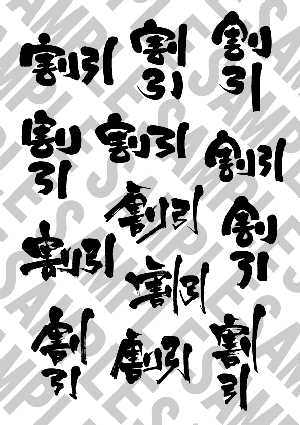 割引
割引
割引
割引
割引
割引
割引
割引
割引
割引
割引
割引
割引
SAMPLE